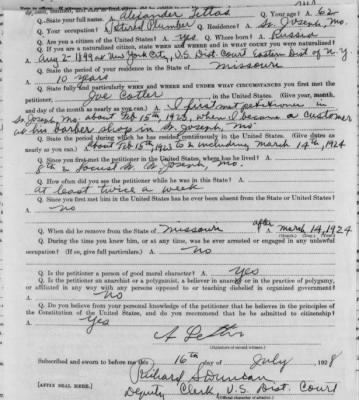 Q. State your full name. A. Alexander Q. Your age? A. 62
Q. Your occupation? A. Retired Plumber Q. Residence? A. St. Joseph, Mo.
Q. Are you a citizen of the United States? A. Yes Q. Where born? A. Russia
Q. If you are a naturalized citizen, state WHEN and WHERE and in WHAT COURT you were naturalized?
A. Aug 2-1899 at New York City, U.S. Dist Court Eastern Dist of N.Y.
Q. State the period of your residence in the State of Missouri
10 years
Q. State fully and particularly WHEN and WHERE and UNDER WHAT CIRCUMSTANCES you first met the
petitioner, Joe in the United States. (Give year, month,
and day of the month as nearly as you can.) A. I first met petitioner in
St. Joseph, Mo. about Feb 15th, 1923, when I became a customer
at his barber shop in St. Joseph, Mo.
Q. State the period during which he has resided continuously in the United States. (Give dates as
nearly as you can.) About Feb 15th, 1923 to & including March 14th, 1924
Q. Since you first met the petitioner, where has he lived? A.
8th & Locust St. St. Joseph, Mo.
Q. How often did you see the petitioner while he was in this State? A.
at least twice a week
Q. Since you first met him in the United States has he ever been absent from the State or United States?
A. no
Q. When did he remove from the State of Missouri A. after March 14, 1924
Q. During the time you knew him, or at any time, was he ever arrested or engaged in any unlawful
occupation? (If so, give full particulars.) A. No
Q. Is the petitioner a person of good moral character? A. Yes
Q. Is the petitioner an anarchist or a polygamist, a believer in anarchy or in the practice of polygamy,
or affiliated in any way with any persons opposed to or teaching disbelief in organized government?
A. No
Q. Do you believe from your personal knowledge of the petitioner that he believes in the principles of
the Constitution of the United States, and do you recommend that he be admitted to citizenship?
A. Yes
(Signature of second witness.)
Subscribed and sworn to before me this 16th day of July, 1928
Richard S Duncan
[AFFIX SEAL HERE.] Deputy Clerk, U.S. Dist. Court
(Official character of attestor.)